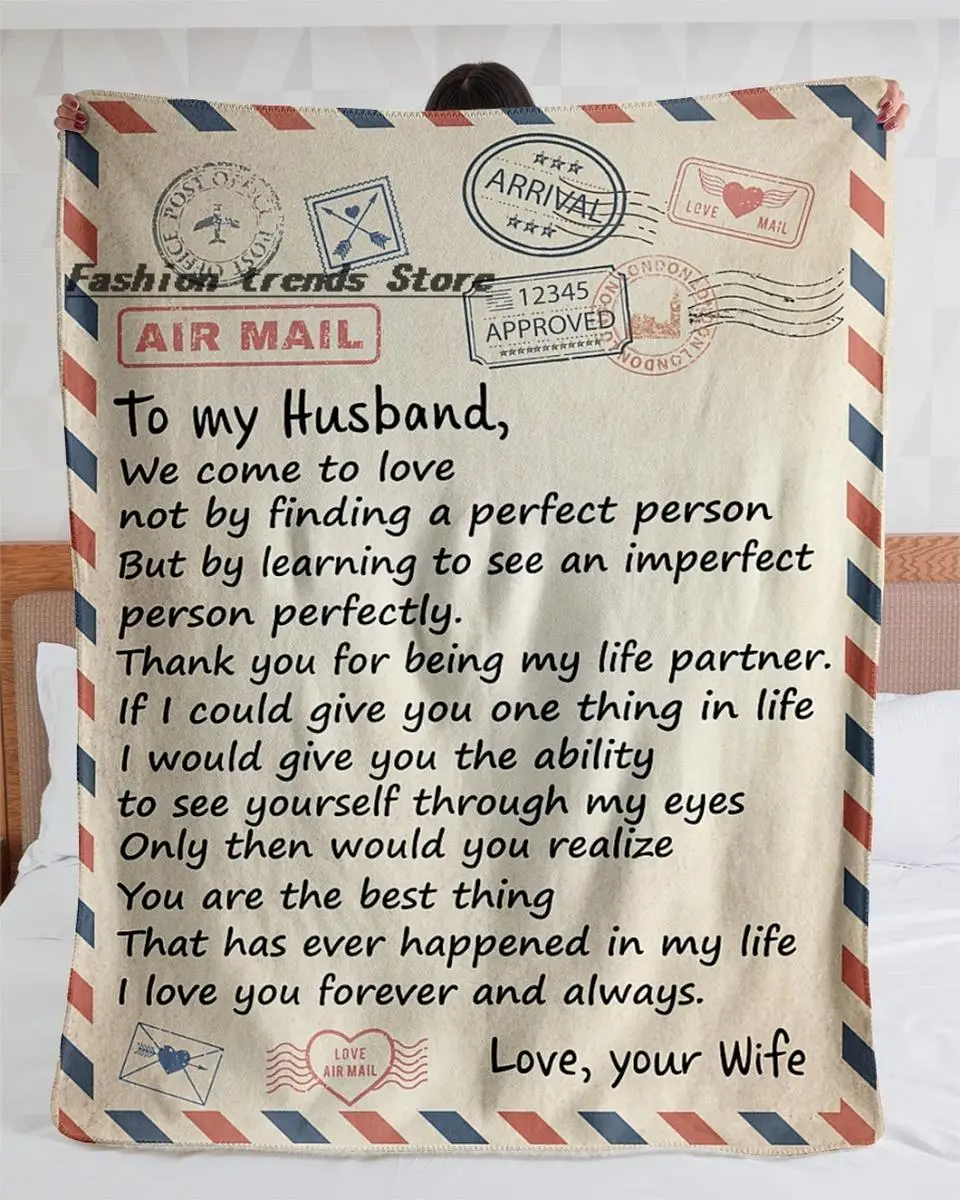 POST OFFICE POST OFFICE
ARRIVAL
LOVE MAIL
Fashion trends Store
12345
APPROVED
LONDON LONDON LONDON
AIR MAIL
To my Husband,
We come to love
not by finding a perfect person
But by learning to see an imperfect
person perfectly.
Thank you for being my life partner.
If I could give you one thing in life
I would give you the ability
to see yourself through my eyes
Only then would you realize
You are the best thing
That has ever happened in my life
I love you forever and always.
LOVE
AIR MAIL
Love, your Wife